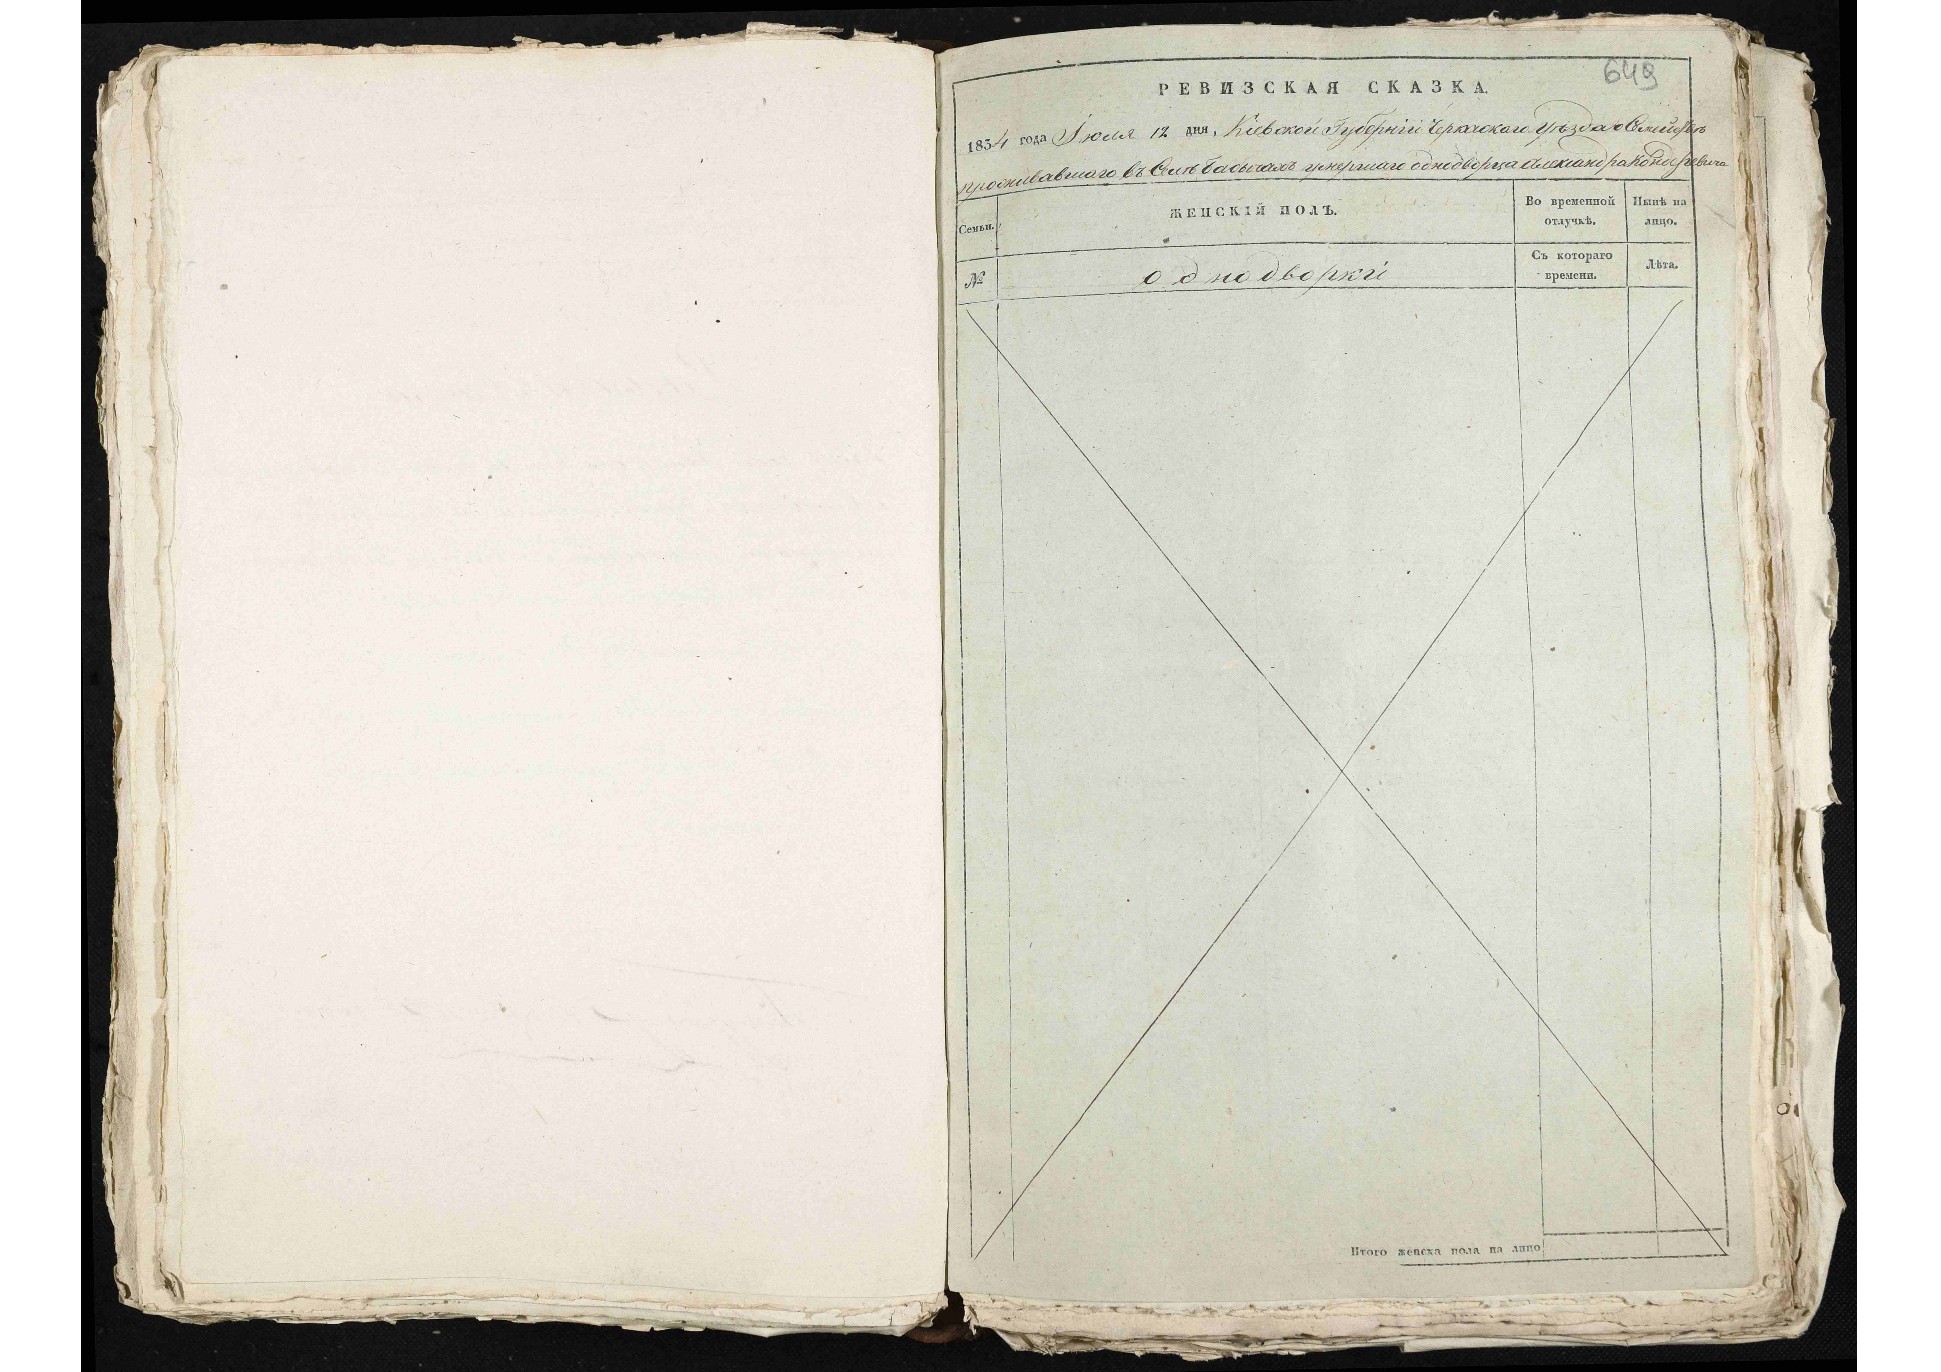 649
РЕВИЗСКАЯ СКАЗКА.
1834 года Іюля 12 дня, Кіевской Губерніи Черкаскаго Уѣзда о Семействѣ
проживавшаго въ Селѣ умершаго однодворца Александра
Семьи.
ЖЕНСКІЙ ПОЛЪ.
Во временной отлучкѣ.
Нынѣ на лицо.
№
однодворки
Съ котораго времени.
Лѣта.
Итого женска пола на лицо